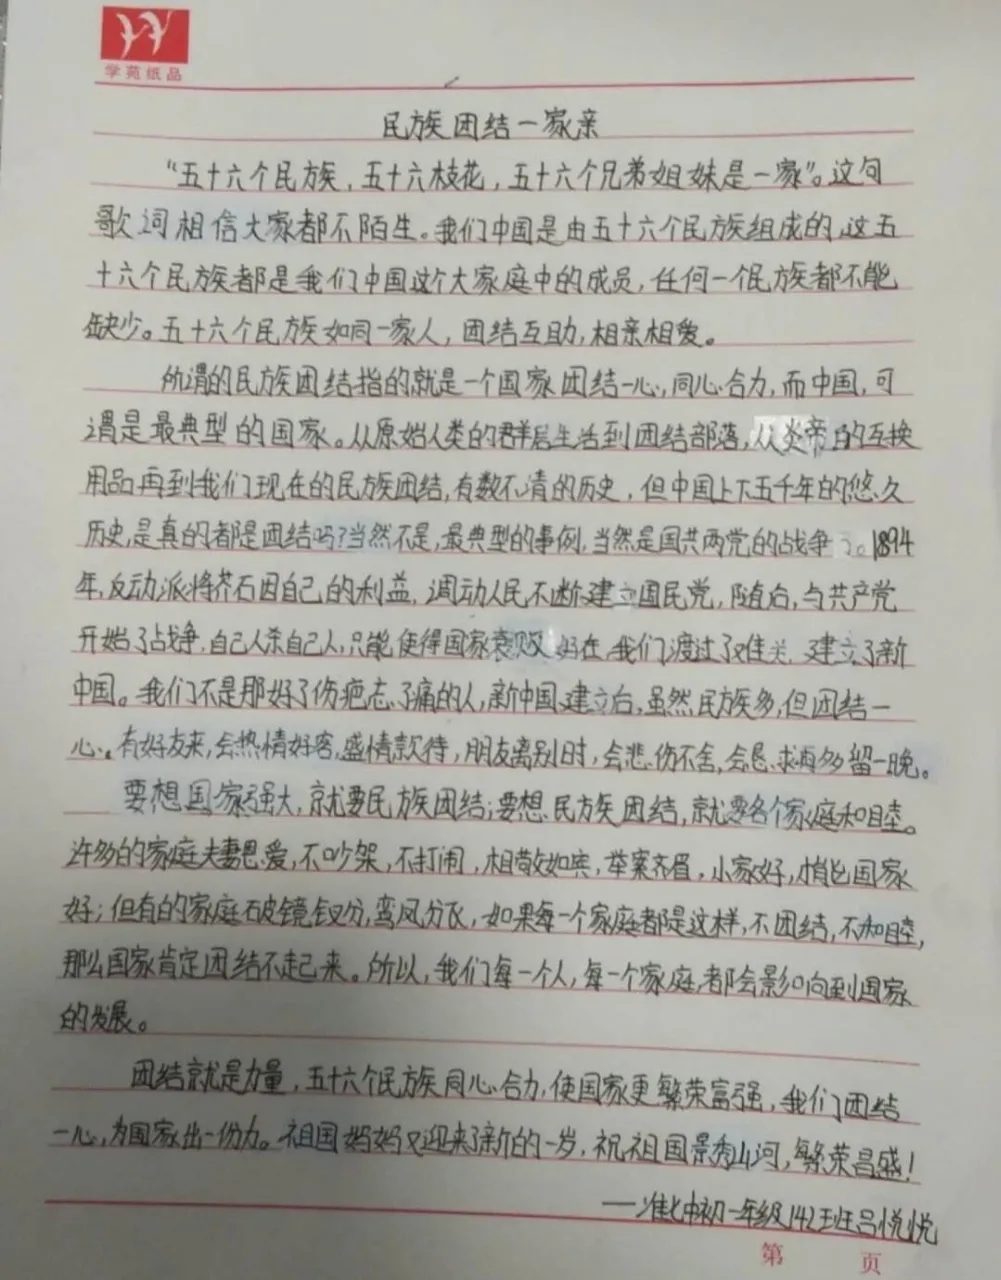 学苑纸品
民族团结一家亲
“五十六个民族，五十六枝花，五十六个兄弟姐妹是一家”。这句
歌词相信大家都不陌生。我们中国是由五十六个民族组成的，这五
十六个民族都是我们中国这个大家庭中的成员，任何一个民族都不能
缺少。五十六个民族如同一家人，团结互助，相亲相爱。
所谓的民族团结指的就是一个国家团结一心，同心合力，而中国，可
谓是最典型的国家。从原始人类的群居生活到团结部落，从炎帝的互换
用品再到我们现在的民族团结，有数不清的历史，但中国上下五千年的悠久
历史，是真的都是团结吗？当然不是，最典型的事例，当然是国共两党的战争了。1894
年，反动派将介石因自己的利益，调动人民不断建立国民党，随后，与共产党
开始了战争，自己人杀自己人，只能使得国家衰败，好在，我们渡过了难关，建立了新
中国。我们不是那好了伤疤忘了痛的人，新中国建立后，虽然民族多，但团结一
心。有好友来，会热情好客，盛情款待，朋友离别时，会悲伤不舍，会恳求再多留一晚。
要想国家强大，就要民族团结；要想民族团结，就要各个家庭和睦。
许多的家庭夫妻恩爱，不吵架，不打闹，相敬如宾，举案齐眉，小家好，国家
好；但有的家庭破镜钗分，鸾凤分飞，如果每一个家庭都是这样，不团结，不和睦，
那么国家肯定团结不起来。所以，我们每一个人，每一个家庭，都会影响到国家
的发展。
团结就是力量，五十六个民族同心合力，使国家更繁荣富强，我们团结
一心，为国家出一份力。祖国妈妈又迎来了新的一岁，祝祖国景秀山河，繁荣昌盛！
——准中初一年级142班吕悦悦
第 页